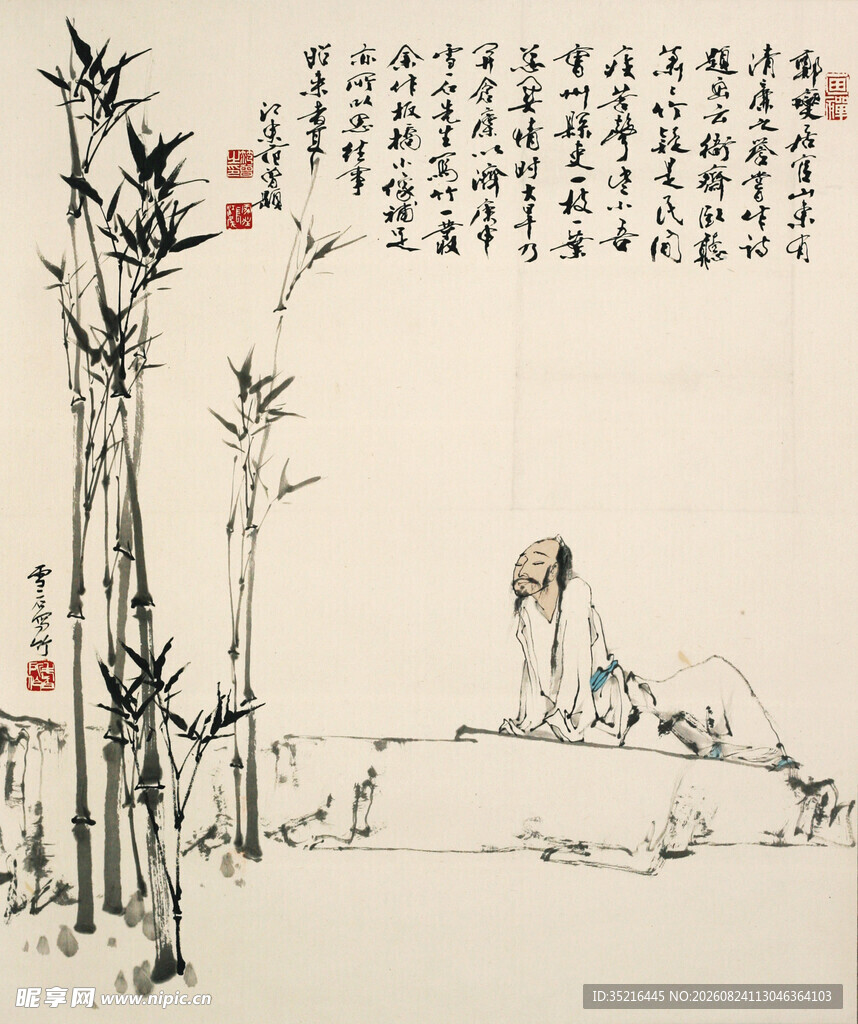 鄭燮居官山東有
清廉之譽嘗作詩
題画云衙齋臥聽
蕭〻竹疑是民間
疾苦聲些小吾
曹州縣吏一枝一葉
总關情時大旱乃
開倉廩以濟
雪石先生寫竹一叢
余作板橋小像補足
亦所以思往事
昭来者
江東范曾題
雪石寫竹
昵享网 www.nipic.cn
ID:35216445 NO:20260824113046364103